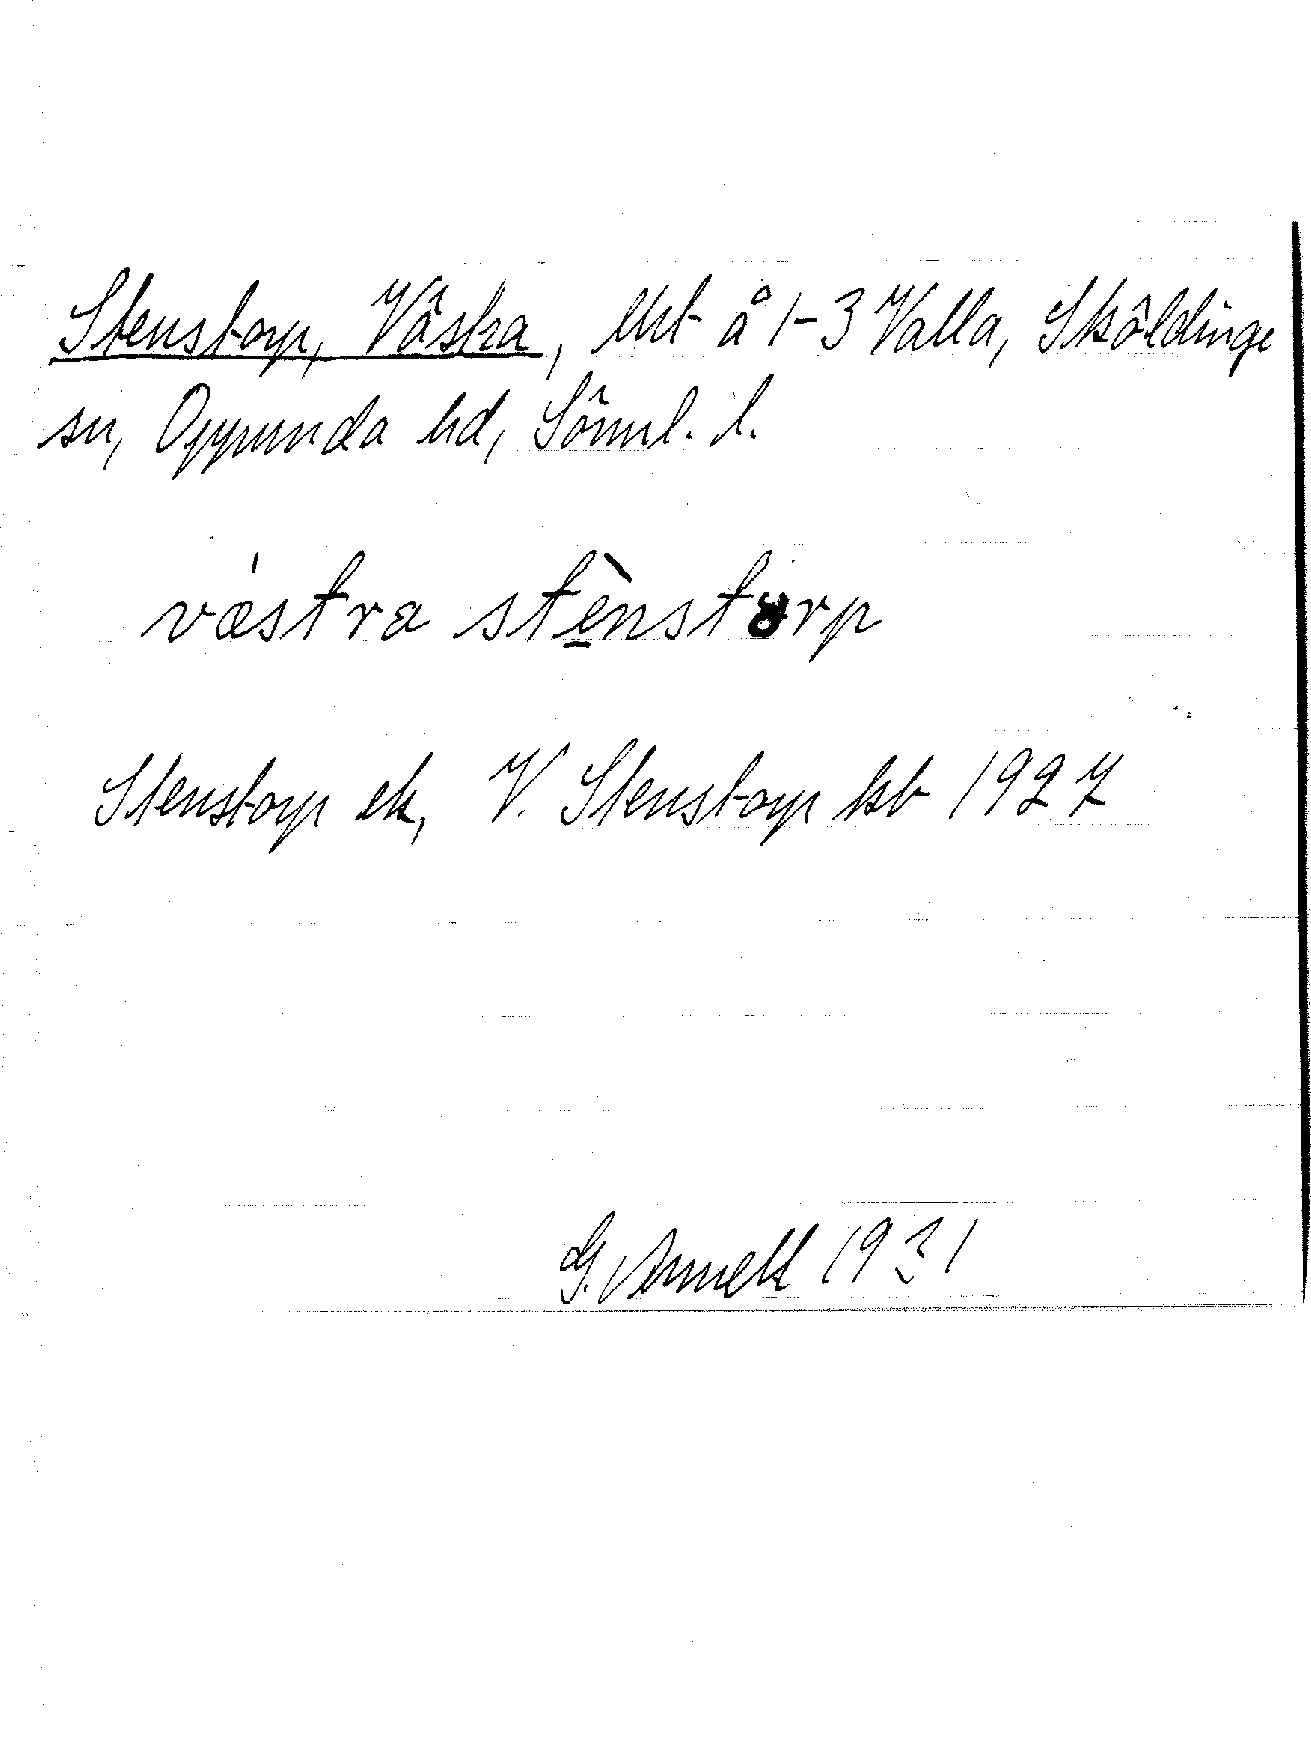 Stenstorp, Västra, lht å 1-3 Valla, Sköldinge
sn, Oppunda hd, Sörml. l.
væ̍stra stè̱nstȯrp
Stenstorp ek, V. Stenstorp kb 1927
1931